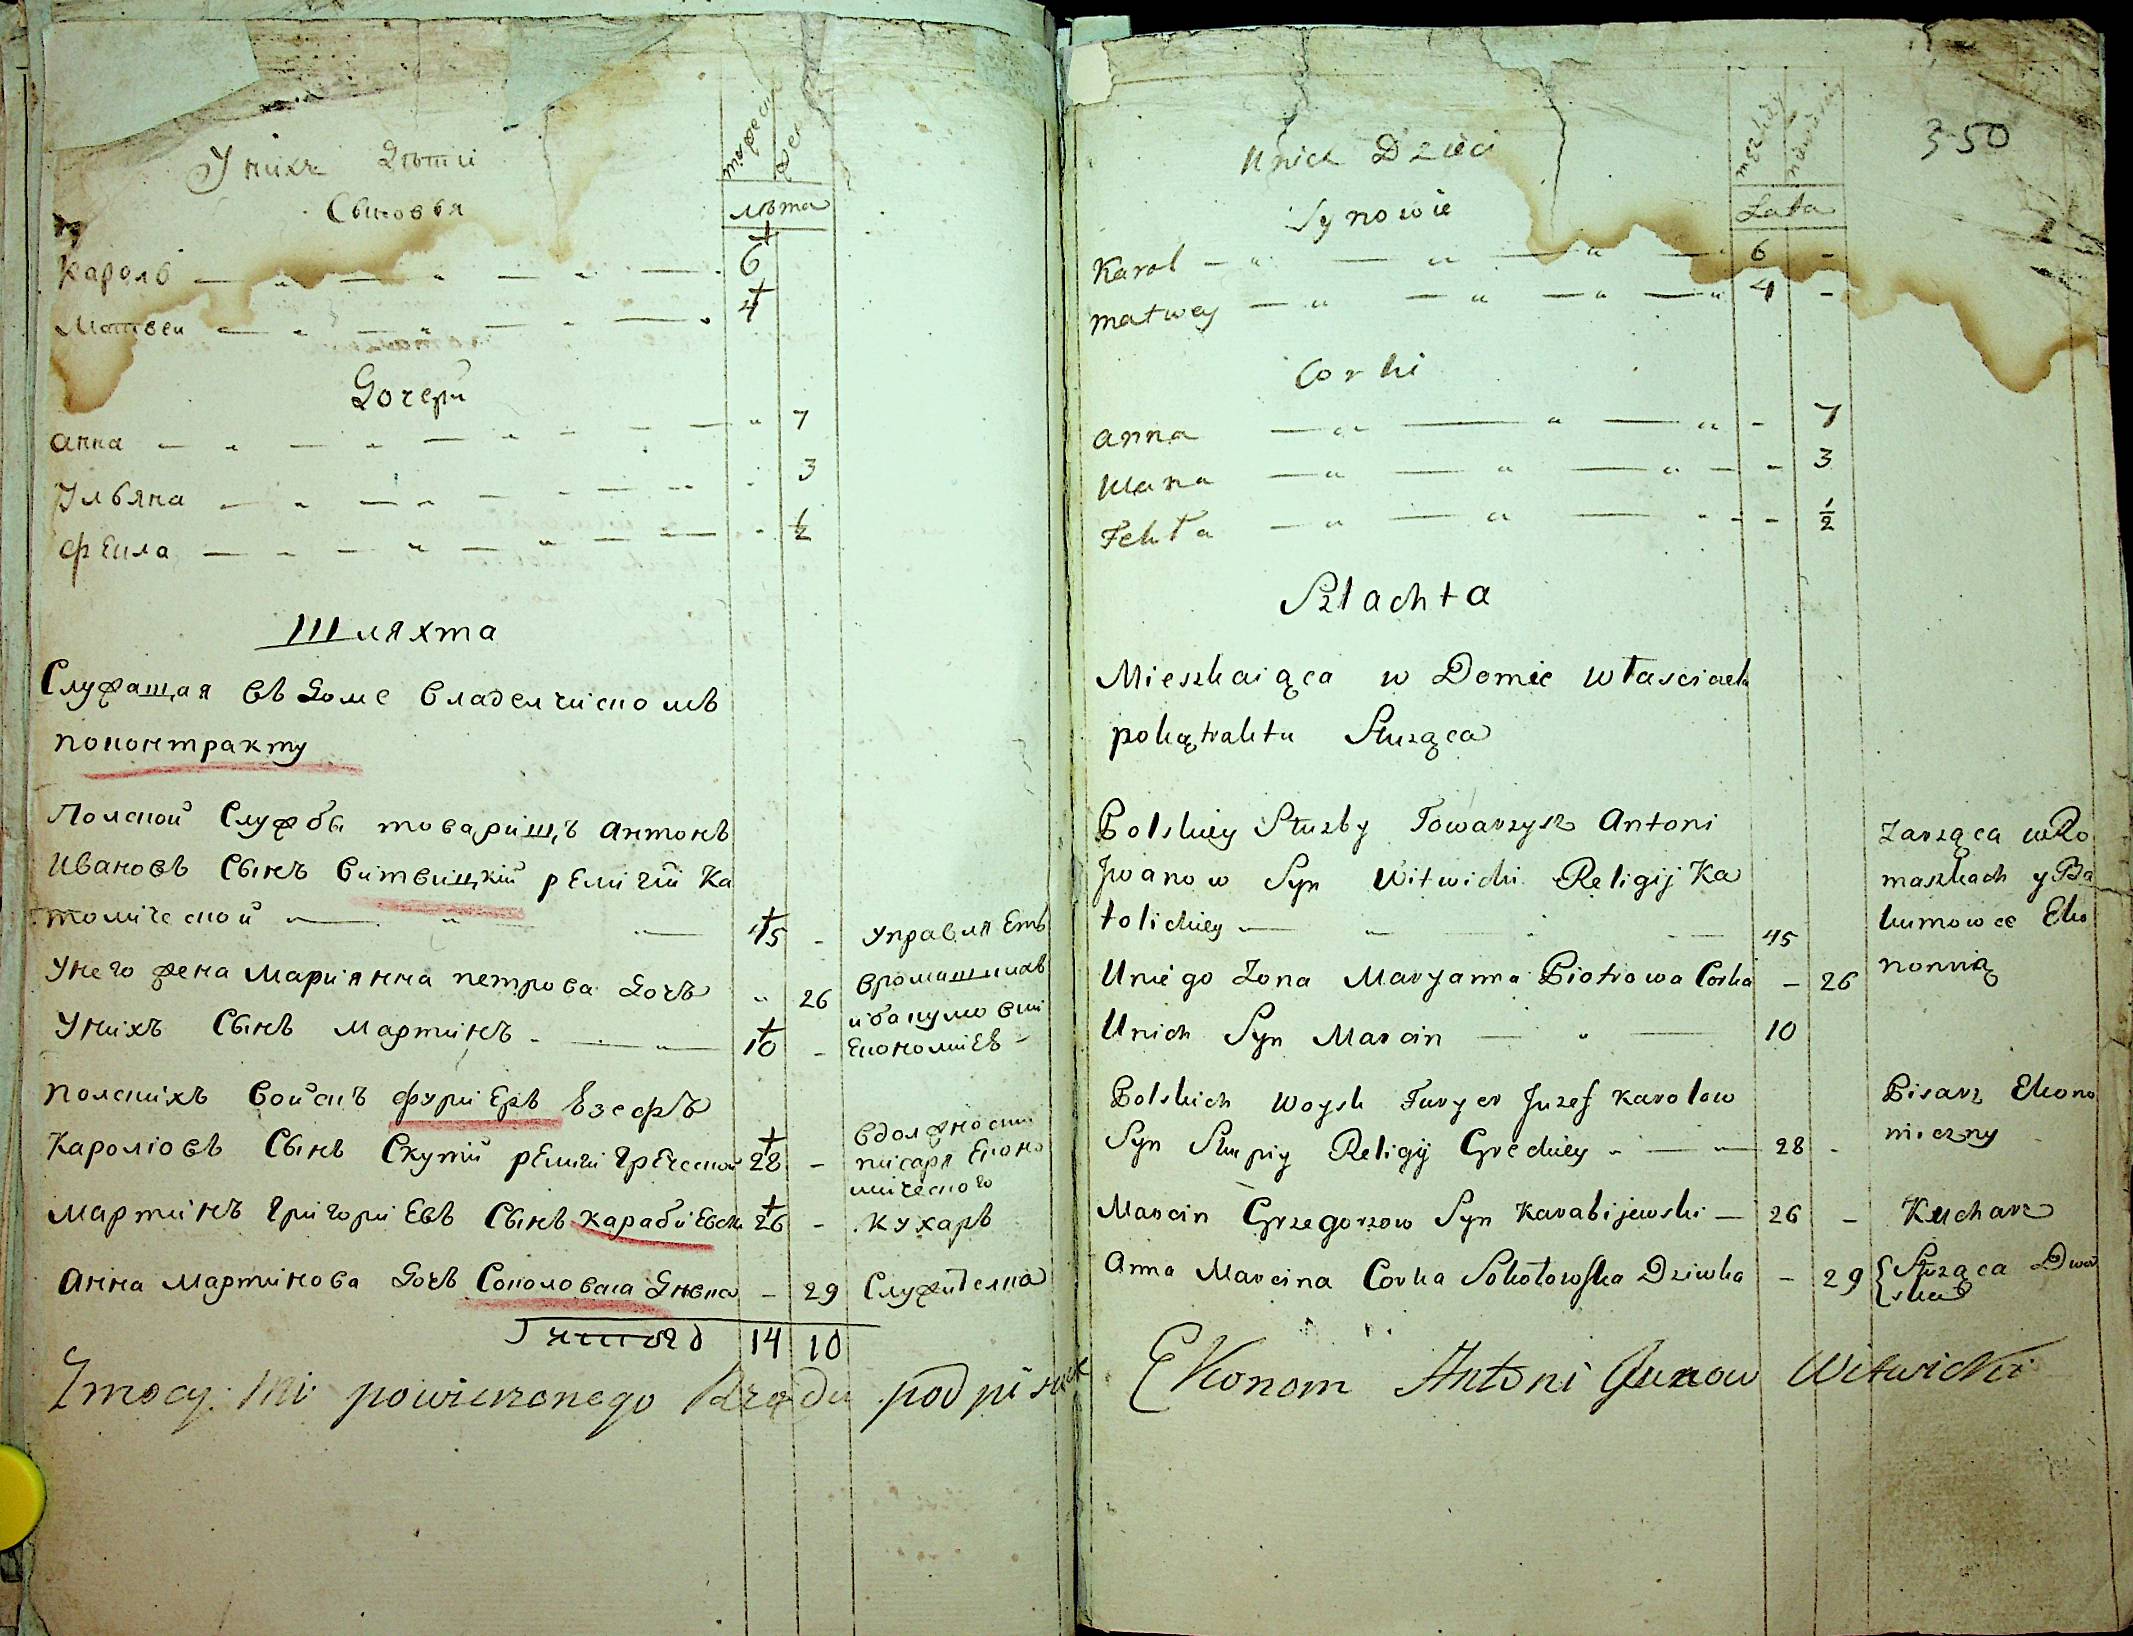 Унихъ Дѣти
мужеск
жен
Сыновья
лѣта
Кароль 6
Матвеи 4
Дочери
Анна 7
Ульяна 3
Феила ½
Шляхта
Служащая въ Доме владелчискомъ
поконтракту
Полской Службы товарищъ Антонъ
Ивановъ Сынъ Витвицкій религій Ка
толической 45 - управляетъ
вромашкахъ
ибакумовки
Економиев -
Унего жена Марианна петрова Дочъ " 26
Унихъ Сынъ Мартинъ 10 -
полскихъ войскъ фуриеръ Ѣзефъ
Кароліовъ Сынъ Скупій религи Греческой 28 -
вдолжности
писаря Еконо
мического
Мартинъ Григориевъ Сынъ Карабиевски 26 - кухаръ
Анна Мартинова Дочъ Соколовска Дѣвка - 29 Служителка
14 10
Zmocy mi powierzonego Rządu podpisałem
350
Unich Dzieci
męzkiey
Synowie
Lata
Karol 6 -
Matwey 4 -
Corki
Anna - 7
Ulana - 3
Fekła - ½
Szlachta
Mieszkaiąca w Domie własciciel
pokątraktu Służąca
Polskiey Służby Towarzysz Antoni
Jwanow Syn Witwicki Religij Ka
tolickiey 45
Zarząca wRo
maszkach y Ba
kumowce Eko
nomią
Uniego Zona Maryanna Piotrowa Corka - 26
Unich Syn Marcin 10
Polskich Woysk Furyer Juzef Karolow
Syn Skupiy Religij Greckiey 28 -
Pisarz Ekono
miczny
Marcin Grzegorzow Syn Karabijewski 26 - Kucharz
Anna Marcina Corka Sokołowska Dziwka - 29 Służąca Dwor
ska
Ekonom Antoni Jwanow Witwicki